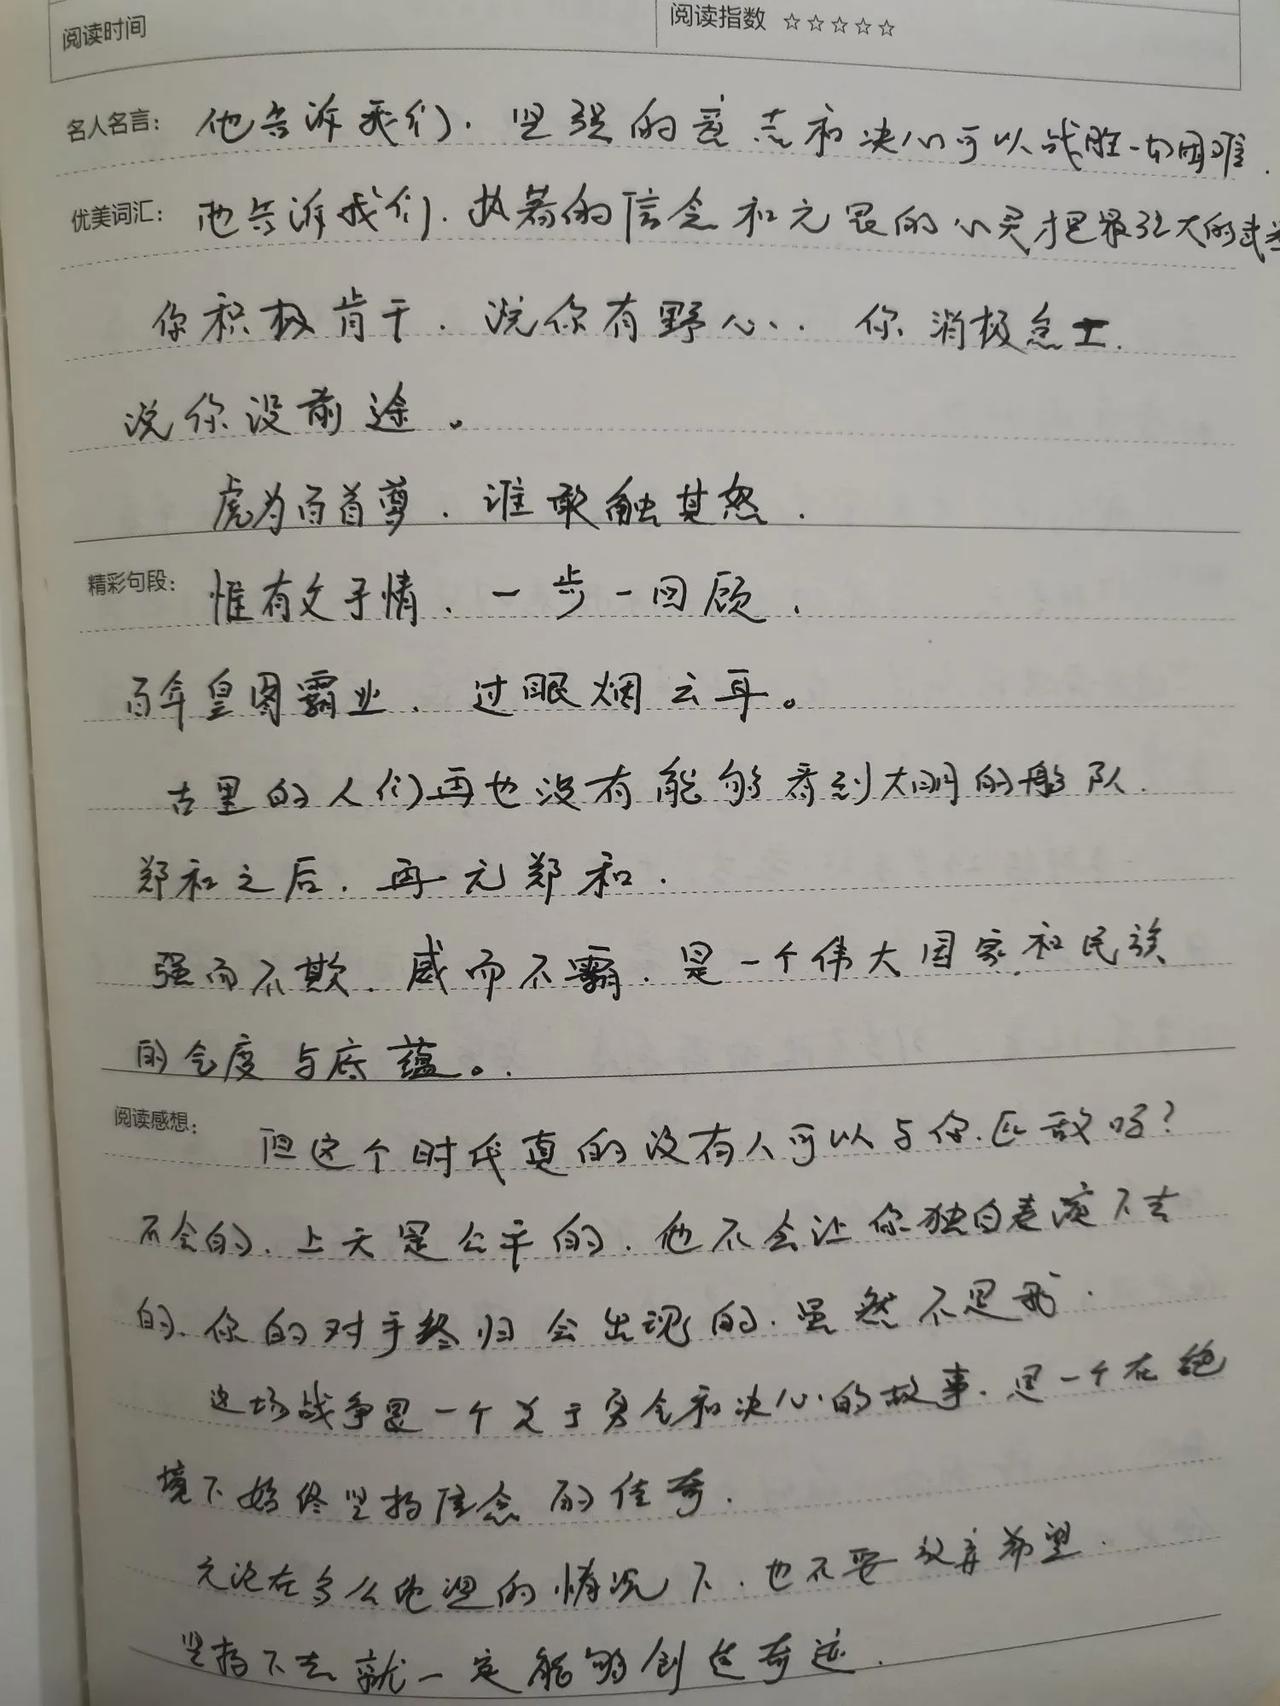 阅读时间
阅读指数 ☆☆☆☆☆
名人名言: 他告诉我们,坚强的意志和决心可以战胜一切困难.
优美词汇: 他告诉我们,执著的信念和无畏的心灵才是最强大的武器
你积极肯干,说你有野心,你消极怠工,
说你没前途。
虎为百兽尊,谁敢触其怒,
精彩句段: 惟有父子情,一步一回顾,
百年皇图霸业,过眼烟云耳。
古里的人们再也没有能够看到大明的船队,
郑和之后,再无郑和.
强而不欺,威而不霸,是一个伟大国家和民族
的气度与底蕴。
阅读感想: 但这个时代真的没有人可以与你匹敌吗?
不会的,上天是公平的,他不会让你独自表演下去
的,你的对手终归会出现的,虽然不是我.
这场战争是一个关于勇气和决心的故事,是一个在绝
境下始终坚持信念的传奇.
无论在多么绝望的情况下,也不要放弃希望.
坚持下去就一定能够创造奇迹.